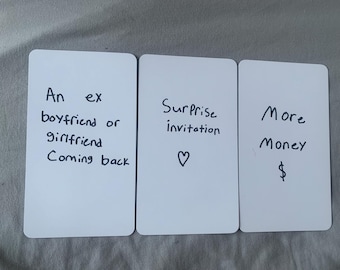 An ex
boyfriend or
girlfriend
Coming back
Surprise
invitation
♡
More
Money
$